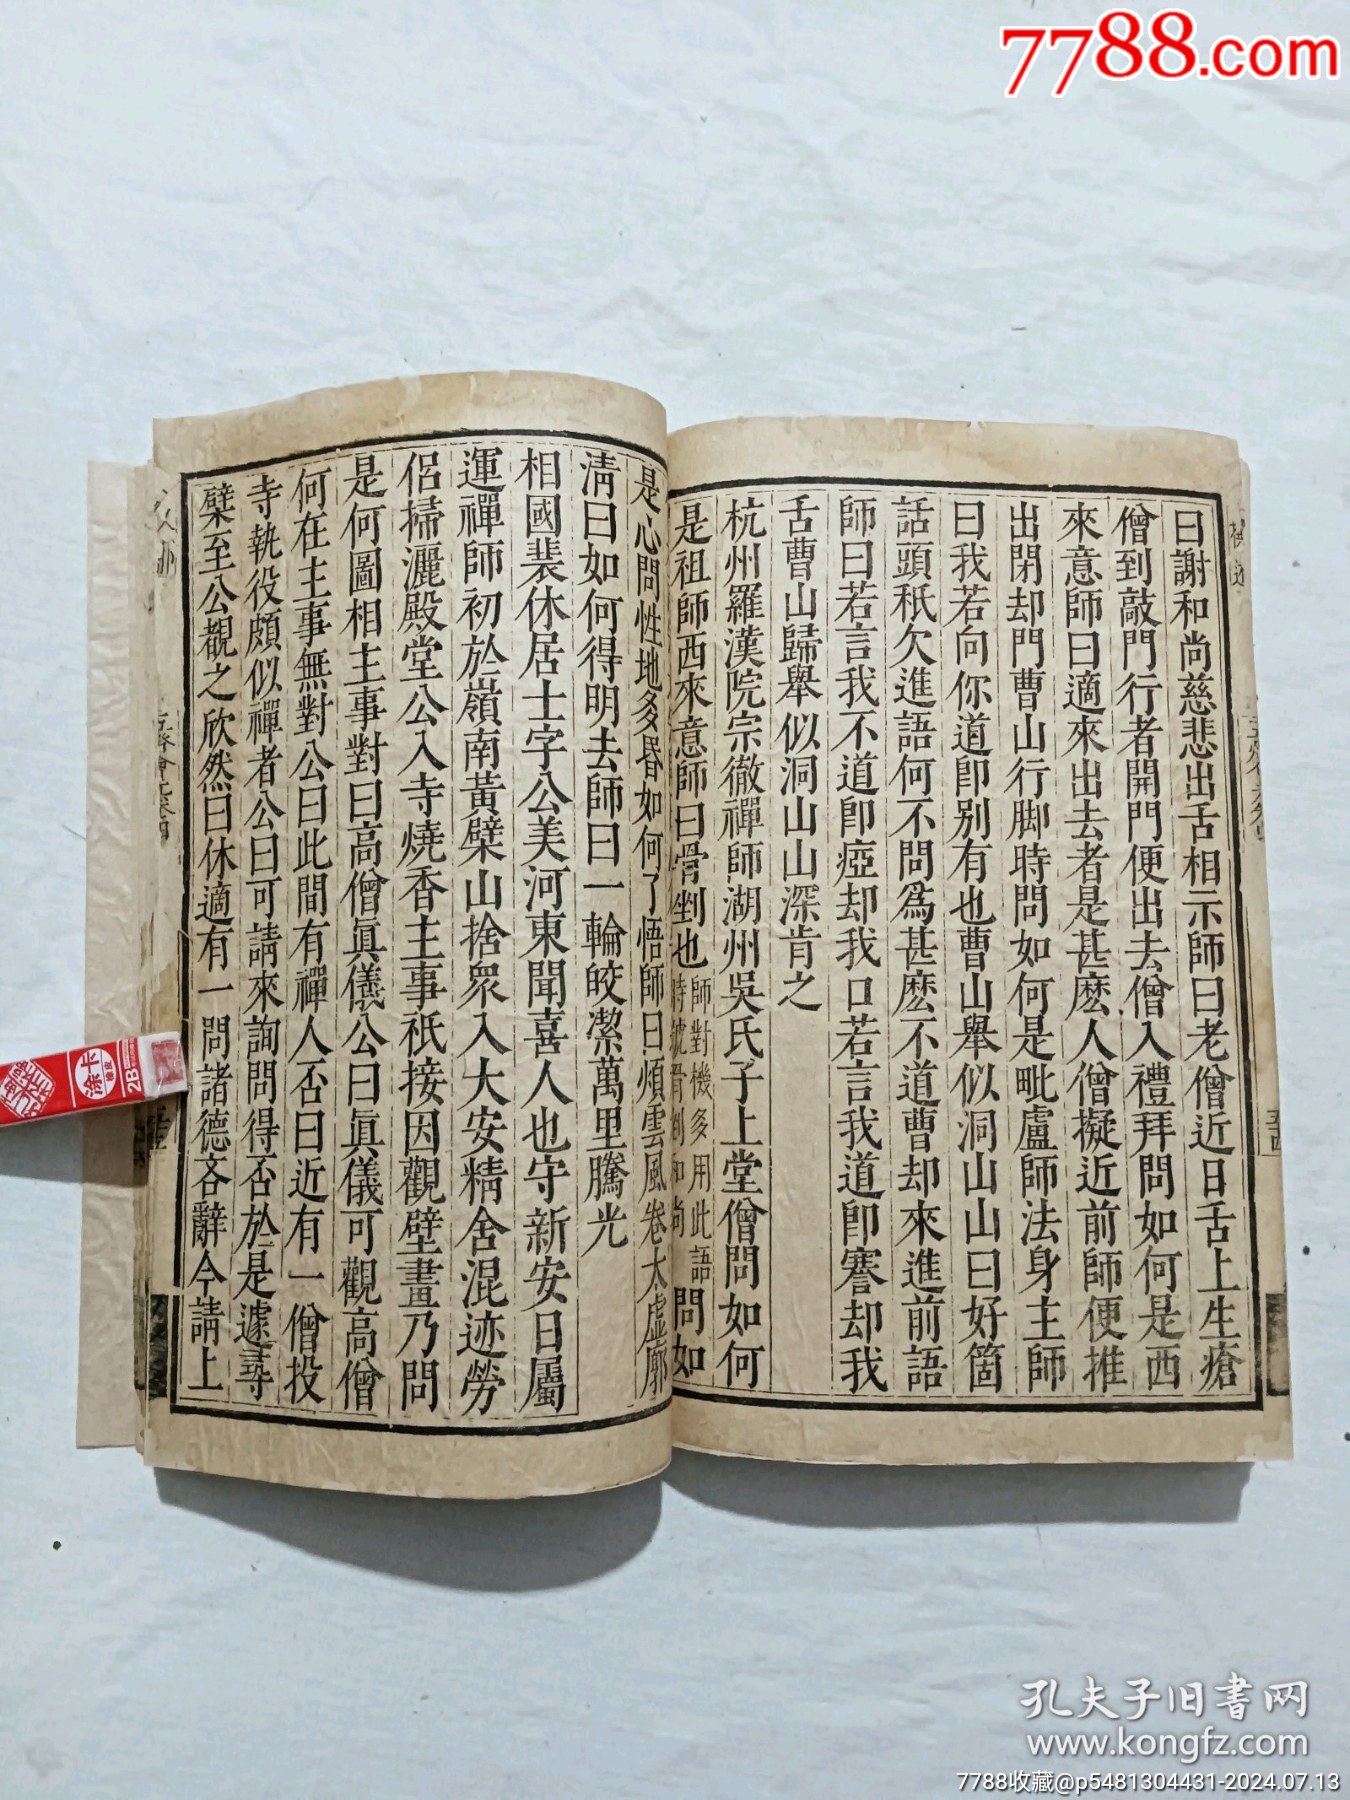 7788.com
曰謝和尚慈悲出舌相示師曰老僧近日舌上生瘡
僧到敲門行者開門便出去僧入禮拜問如何是西
來意師曰適來出去者是甚麽人僧擬近前師便推
出閉却門曹山行脚時問如何是毗盧師法身主師
曰我若向你道卽别有也曹山舉似洞山山曰好箇
話頭秖欠進語何不問爲甚麽不道曹却來進前語
師曰若言我不道卽瘂却我口若言我道卽謇却我
舌曹山歸舉似洞山山深肯之
杭州羅漢院宗徹禪師湖州吳氏子上堂僧問如何
是祖師西來意師曰骨剉也師對機多用此語時號骨剉和尚問如
是心問性地多昏如何了悟師曰煩雲風卷太虛廓
淸曰如何得明去師曰一輪皎潔萬里騰光
相國裴休居士字公美河東聞喜人也守新安日屬
運禪師初於嶺南黃檗山捨衆入大安精舍混迹勞
侶掃灑殿堂公入寺燒香主事祇接因觀壁畫乃問
是何圖相主事對曰高僧眞儀公曰眞儀可觀高僧
何在主事無對公曰此間有禪人否曰近有一僧投
寺執役頗似禪者公曰可請來詢問得否於是遽尋
檗至公覩之欣然曰休適有一問諸德吝辭今請上
五燈會元卷四
五十四
涂卡
橡皮
2B
孔夫子旧書网
www.kongfz.com
7788收藏@p5481304431-2024.07.13